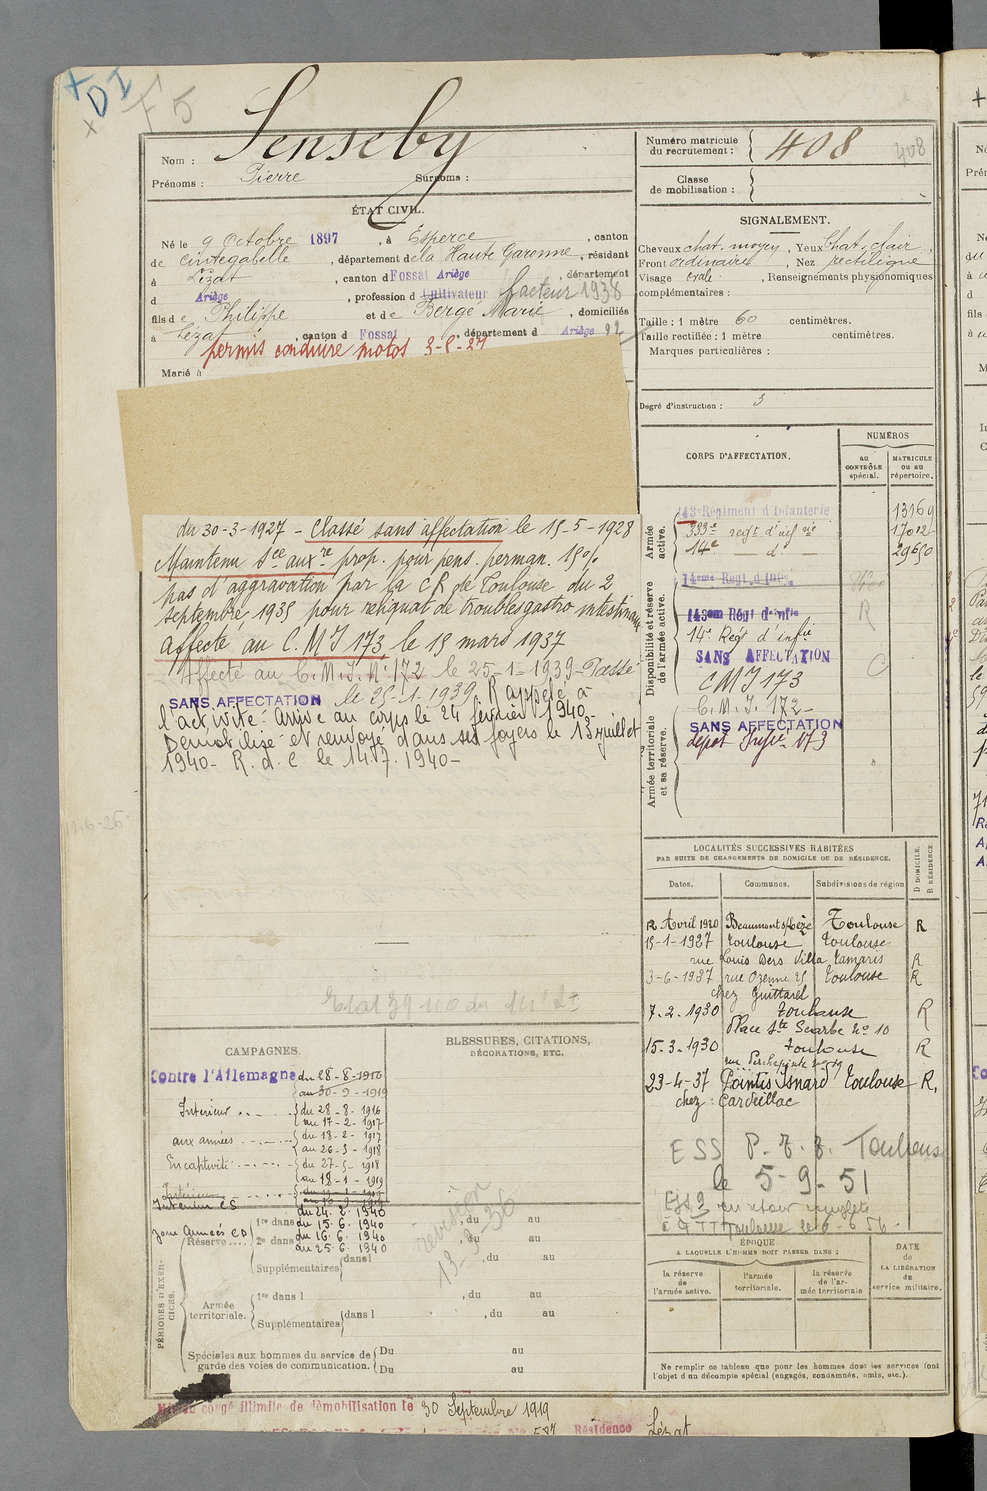 + DI
F 5
Nom : Senseby
Prénoms : Pierre Surnoms :
Numéro matricule du recrutement : 408
408
Classe de mobilisation :
ÉTAT CIVIL.
Né le 9 Octobre 1897, à Esperce, canton
de Cintegabelle, département de la Haute Garonne, résidant
à Lézat, canton d Fossat Ariège, département
d Ariège, profession d Cultivateur facteur 1938
fils de Philippe et de Berge Marie, domiciliés
à Lézat, canton d Fossat, département d Ariège
permis conduire motos
Marié à
SIGNALEMENT.
Cheveux chat. moyen, Yeux Chat. clair
Front ordinaire, Nez rectiligne
Visage ovale, Renseignements physionomiques
complémentaires :
Taille : 1 mètre 60 centimètres.
Taille rectifiée : 1 mètre centimètres.
Marques particulières :
Degré d'instruction : 3
du 30-3-1927 - Classé sans affectation le 15-5-1928
Maintenu Sce auxre prop. pour pens. perman. 15%
pas d'aggravation par la CR de Toulouse du 2
septembre 1935 pour reliquat de troubles gastro intestinaux
Affecté au C.M.I 173, le 15 mars 1937
Affecté au C.M.I. N° 172 le 25-1-1939 - Passé
SANS AFFECTATION le 25-1-1939. Rappelé à
l'activité. Arrivé au corps le 24 février 1940.
Démobilisé et renvoyé dans ses foyers le 13 juillet
1940 - R. d. C le 14.7.1940 -
CORPS D'AFFECTATION.
NUMÉROS
au CONTRÔLE spécial.
MATRICULE ou au répertoire.
Armée active.
143e Régiment d'Infanterie 13169
333e regt d'inf ie 17012
14e — d° — 29650
Disponibilité et réserve de l'armée active.
14eme Regt d'Infie
143em Régt d'Infie R
14e Regt d'infie
SANS AFFECTATION
CMI 173
Armée territoriale et sa réserve.
C.M.I. 172 -
SANS AFFECTATION
dépôt Infie 173
LOCALITÉS SUCCESSIVES HABITÉES
PAR SUITE DE CHANGEMENTS DE DOMICILE OU DE RÉSIDENCE.
Dates. Communes. Subdivisions de région D DOMICILE. R RÉSIDENCE.
R Avril 1920 Beaumont s/Lèze Toulouse R
15-1-1927 Toulouse Toulouse
rue Louis Ders Villa Tamaris R
3-6-1937 rue Ozenne 25 Toulouse R
chez Guittarel
7.2.1930 Toulouse R
Place Ste Scarbe N° 10
15.3.1930 Toulouse R
23-4-37 Pointis Isnard Toulouse R.
chez : Cardeillac
ESS P. Z. Z. Toulouse
le 5-9-51
CAMPAGNES.
Contre l'Allemagne du 28-8-1916
au 30-9-1919
Intérieur du 28-8-1916
au 17-2-1917
aux armées du 18-2-1917
au 26-5-1918
En captivité du 27-5-1918
au 18-1-1919
Intérieur
Intérieur CS du 24.2.1940
au 15.6.1940
Zone Armées CD du 16.6.1940
au 25.6.1940
BLESSURES, CITATIONS,
DÉCORATIONS, ETC.
PÉRIODES D'EXERCICES.
Réserve.... 1re dans , du au
2e dans , du au
Supplémentaires dans l , du au
Armée territoriale. 1re dans l , du au
Supplémentaires dans l , du au
Spéciales aux hommes du service de garde des voies de communication. Du au
Du au
ÉPOQUE
A LAQUELLE L'HOMME DOIT PASSER DANS :
la réserve de l'armée active.
l'armée territoriale.
la réserve de l'armée territoriale
DATE de LA LIBÉRATION du service militaire.
Ne remplir ce tableau que pour les hommes dont les services font
l'objet d'un décompte spécial (engagés, condamnés, omis, etc.).
Mis en congé illimité de démobilisation le 30 Septembre 1919
Résidence Lézat